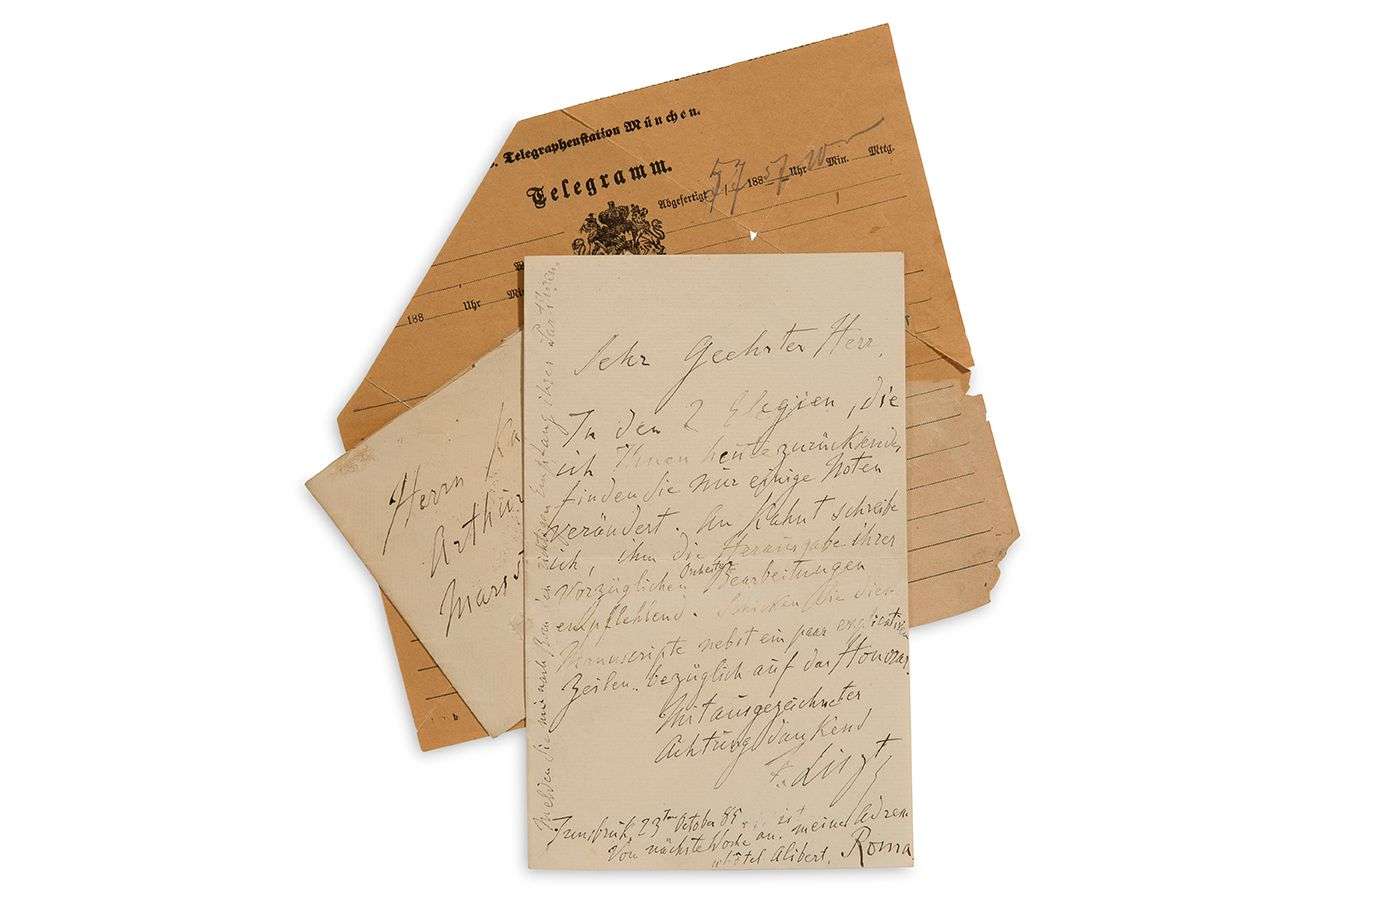 Telegraphenstation München.
Telegramm.
Abgefertigt 188 Uhr Min. Mttg.
188 Uhr
Herrn
Arthur
Sehr Geehrter Herr,
In den 2 Elegien, die
ich Ihnen heute zurücksende,
finden Sie nur einige Noten
verändert. An Kahnt schreibe
ich, ihm die Herausgabe ihrer
Orchester
vorzüglichen Bearbeitungen
empfehlend. Schicken Sie die
Manuscripte nebst ein paar
Zeilen bezüglich auf das Honorar.
Mit ausgezeichneter
Achtung dankend
F. Liszt
Innsbruck, 23ten October 85
Von nächste Woche an ist meine Adresse
Hôtel Alibert, Roma.
Melden Sie mir nach den richtigen Empfang ihrer Partituren.